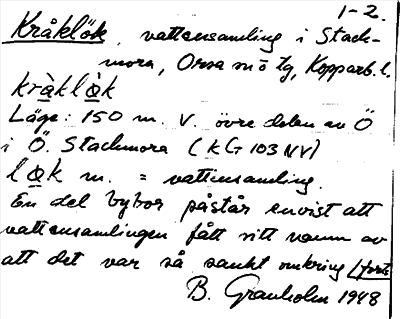 1-2.
Kråklök, vattensamling i Stack-
mora, Orsa sn ö tg, Kopparb. l.
kràklòk
Läge: 150 m. V. övre delen av Ö
i Ö. Stackmora (KG 103 NV)
løk m. = vattensamling.
En del bybor påstår envist att
vattensamlingen fått sitt namn av
att det var så sankt omkring /forts
B. Granholm 1948